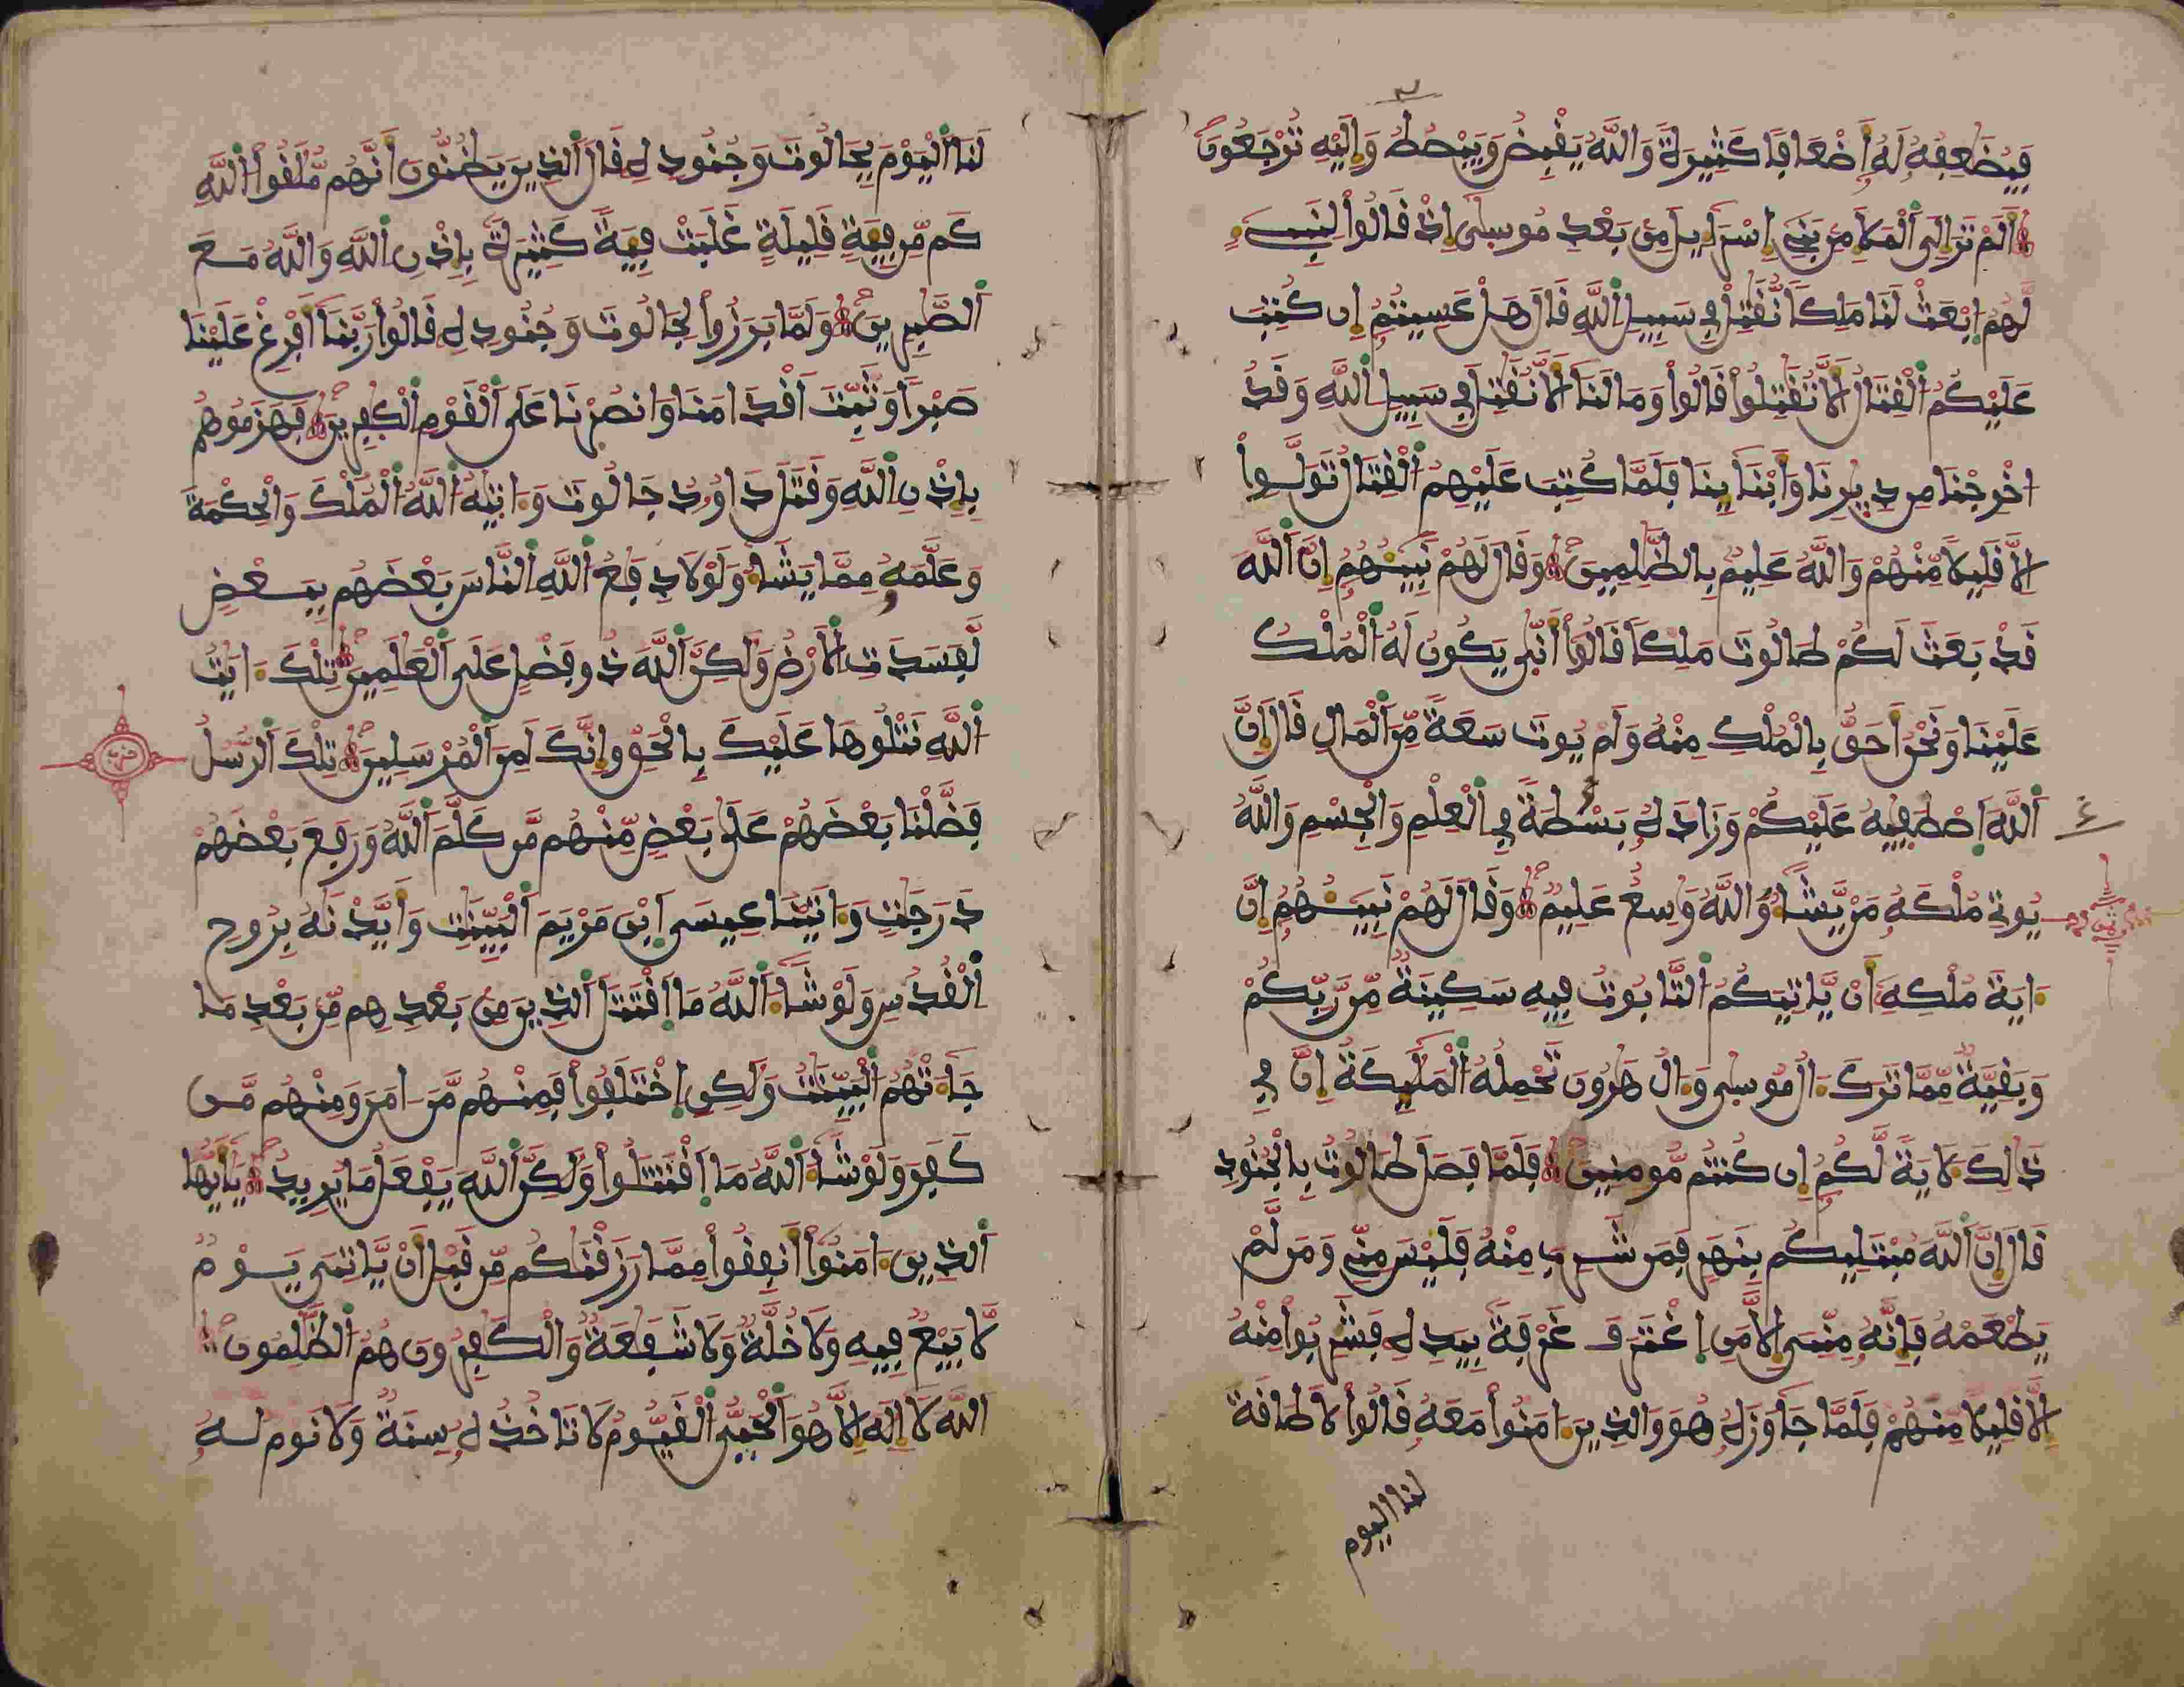 فَيُضَٰعِفُهُۥ لَهُۥٓ أَضْعَافاٗ كَثِيرَةٗ وَاللَّهُ يَقْبِضُ وَيَبْصُطُ وَإِلَيْهِ تُرْجَعُونَ
أَلَمْ تَرَ إِلَى ٱلْمَلَإِ مِنۢ بَنِےٓ إِسْرَآءِيلَ مِنۢ بَعْدِ مُوسَىٰٓ إِذْ قَالُواْ لِنَبِےٓءٖ
لَّهُمُ ٱبْعَثْ لَنَا مَلِكاٗ نُّقَٰتِلْ فِے سَبِيلِ ٱللَّهِ قَالَ هَلْ عَسِيتُمُۥٓ إِن كُتِبَ
عَلَيْكُمُ ٱلْقِتَالُ أَلَّا تُقَٰتِلُواْ قَالُواْ وَمَا لَنَآ أَلَّا نُقَٰتِلَ فِے سَبِيلِ ٱللَّهِ وَقَدُ
اخْرِجْنَا مِن دِيٰرِنَا وَأَبْنَآئِنَا فَلَمَّا كُتِبَ عَلَيْهِمُ ٱلْقِتَالُ تَوَلَّوِاْ
الَّا قَلِيلاٗ مِّنْهُمْ وَاللَّهُ عَلِيمُۢ بِالظَّٰلِمِينَ وَقَالَ لَهُمْ نَبِيـُٔهُمُۥٓ إِنَّ ٱللَّهَ
قَدْ بَعَثَ لَكُمْ طَالُوتَ مَلِكاٗ قَالُوٓاْ أَنَّىٰ يَكُونُ لَهُ ٱلْمُلْكُ
عَلَيْنَا وَنَحْنُ أَحَقُّ بِالْمُلْكِ مِنْهُ وَلَمْ يُوتَ سَعَةٗ مِّنَ ٱلْمَالِ قَالَ إِنَّ
ٱللَّهَ ٱصْطَفَيٰهُ عَلَيْكُمْ وَزَادَهُۥ بَسْطَةٗ فِے ٱلْعِلْمِ وَالْجِسْمِ وَاللَّهُ
يُوتِے مُلْكَهُۥ مَنْ يَّشَآءُ وَاللَّهُ وَٰسِعٌ عَلِيمٌ وَقَالَ لَهُمْ نَبِيـُٔهُمُۥٓ إِنَّ
ءَايَةَ مُلْكِهِۦٓ أَنْ يَّاتِيَكُمُ ٱلتَّابُوتُ فِيهِ سَكِينَةٞ مِّن رَّبِّكُمْ
وَبَقِيَّةٞ مِّمَّا تَرَكَ ءَالُ مُوسَىٰ وَءَالُ هَٰرُونَ تَحْمِلُهُ ٱلْمَلَٰٓئِكَةُ إِنَّ فِے
ذَٰلِكَ لَأٓيَةٗ لَّكُمُۥٓ إِن كُنتُم مُّومِنِينَ فَلَمَّا فَصَلَ طَالُوتُ بِالْجُنُودِ
قَالَ إِنَّ ٱللَّهَ مُبْتَلِيكُم بِنَهَرٖ فَمَن شَرِبَ مِنْهُ فَلَيْسَ مِنِّے وَمَن لَّمْ
يَطْعَمْهُ فَإِنَّهُۥ مِنِّيَ إِلَّا مَنِ ٱغْتَرَفَ غَرْفَةَۢ بِيَدِهِۦ فَشَرِبُواْ مِنْهُ
إِلَّا قَلِيلاٗ مِّنْهُمْ فَلَمَّا جَاوَزَهُۥ هُوَ وَالذِينَ ءَامَنُواْ مَعَهُۥ قَالُواْ لَا طَاقَةَ
لنا اليوم
لَنَا ٱلْيَوْمَ بِجَالُوتَ وَجُنُودِهِۦ قَالَ ٱلذِينَ يَظُنُّونَ أَنَّهُم مُّلَٰقُواْ ٱللَّهِ
كَم مِّن فِئَةٖ قَلِيلَةٍ غَلَبَتْ فِئَةٗ كَثِيرَةَۢ بِإِذْنِ ٱللَّهِ وَاللَّهُ مَعَ
ٱلصَّٰبِرِينَ وَلَمَّا بَرَزُواْ لِجَالُوتَ وَجُنُودِهِۦ قَالُواْ رَبَّنَآ أَفْرِغْ عَلَيْنَا
صَبْراٗ وَثَبِّتَ اَقْدَامَنَا وَانصُرْنَا عَلَى ٱلْقَوْمِ ٱلْكٰفِرِينَ فَهَزَمُوهُم
بِإِذْنِ ٱللَّهِ وَقَتَلَ دَاوُۥدُ جَالُوتَ وَءَاتَيٰهُ ٱللَّهُ ٱلْمُلْكَ وَالْحِكْمَةَ
وَعَلَّمَهُۥ مِمَّا يَشَآءُ وَلَوْلَا دِفَٰعُ ٱللَّهِ ٱلنَّاسَ بَعْضَهُم بِبَعْضٖ
لَّفَسَدَتِ ٱلَارْضُ وَلَٰكِنَّ ٱللَّهَ ذُو فَضْلٍ عَلَى ٱلْعَٰلَمِينَ تِلْكَ ءَايَٰتُ
ٱللَّهِ نَتْلُوهَا عَلَيْكَ بِالْحَقِّ وَإِنَّكَ لَمِنَ ٱلْمُرْسَلِينَ تِلْكَ ٱلرُّسُلُ
حزب
فَضَّلْنَا بَعْضَهُمْ عَلَىٰ بَعْضٖ مِّنْهُم مَّن كَلَّمَ ٱللَّهُ وَرَفَعَ بَعْضَهُمْ
دَرَجَٰتٖ وَءَاتَيْنَا عِيسَى ٱبْنَ مَرْيَمَ ٱلْبَيِّنَٰتِ وَأَيَّدْنَٰهُ بِرُوحِ
ٱلْقُدُسِ وَلَوْ شَآءَ ٱللَّهُ مَا ٱقْتَتَلَ ٱلذِينَ مِنۢ بَعْدِهِم مِّنۢ بَعْدِ مَا
جَآءَتْهُمُ ٱلْبَيِّنَٰتُ وَلَٰكِنِ ٱخْتَلَفُواْ فَمِنْهُم مَّنَ ـامَنَ وَمِنْهُم مَّن
كَفَرَ وَلَوْ شَآءَ ٱللَّهُ مَا ٱقْتَتَلُواْ وَلَٰكِنَّ ٱللَّهَ يَفْعَلُ مَا يُرِيدُ يَٰٓأَيُّهَا
ٱلذِينَ ءَامَنُوٓاْ أَنفِقُواْ مِمَّا رَزَقْنَٰكُم مِّن قَبْلِ أَنْ يَّاتِيَ يَوْمٞ
لَّا بَيْعٞ فِيهِ وَلَا خُلَّةٞ وَلَا شَفَٰعَةٞ وَالْكَٰفِرُونَ هُمُ ٱلظَّٰلِمُونَ
اللَّهُ لَآ إِلَٰهَ إِلَّا هُوَ ٱلْحَيُّ ٱلْقَيُّومُ لَا تَاخُذُهُۥ سِنَةٞ وَلَا نَوْمٞ لَّهُۥ